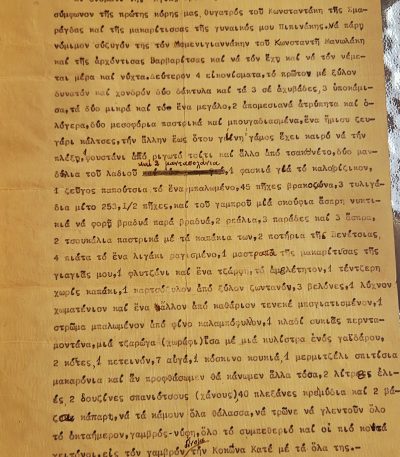 σύμφωνον τῆς πρώτης κόρης μας, θυγατρός τοῦ Κωνσταντάκη τῆς Σμα-
ράγδας καί τῆς μακαρίτισσας τῆς γυναικός μου Πιπινάκης. Νά πάρῃ
νόμιμον σύζυγόν της τόν Μαμενιγιαννάκην τοῦ Κωνσταντῆ Μανωλάκη
καί τῆς ἀρχόντισας Βαρβαρίτσας καί νά τόν ἔχῃ καί νά τόν νέμε-
ται μέρα καί νύχτα. δεύτερον 4 εἰκονίσματα, τό πρῶτον μέ ξύλον
δυνατόν καί χονδρόν δύο δάκτυλα καί τά 3 σέ ἀχυβάδες, 3 ὑποκάμι-
σα, τά δύο μικρά καί τόν ἕνα μεγάλο, 2 ἀπομεσιανά ἀτρύπητα καί ὁ-
λόγερα, δύο μεσοφόρια παστρικά καί μπουγαδιασμένα, ἕνα ἥμισυ ζευ-
γάρι κάλτσες, τήν ἄλλην ἕως ὅτου γείνῃ γάμος ἔχει καιρό νά τήν
πλέξῃ, φουστάνι ἀπό ριγωτό τσίτι καί ἄλλο ἀπό τσακνέτο, δύο μαν-
δύλια τοῦ λαδιοῦ καί 2 , 1 φασκιά γιά τό καλορίζικον,
1 ζεῦγος παπούτσια τό ἕνα μπαλωμένο, 45 πῆχες βρακοζώνα, 3 τυλιγά-
δια μίτο 253, 1/2 πῆχες, καί τοῦ γαμβροῦ μιά σκούφια ἄσπρη νυκτι-
κιά νά φορῇ βραδυά παρά βραδυά, 2 ρεάλια, 3 παράδες καί 3 ἄσπρα,
2 τσουκάλια παστρικά μέ τά καπάκια των, 2 ποτήρια τῆς Βενέτσιας,
4 πιάτα τό ἕνα λιγάκι ραγισμένο, 1 μαστραπᾶ τῆς μακαρίτισας τῆς
γιαγιᾶς μου, 1 φλυτζάνι καί ἕνα τζάρπῃ, τό ἀμελέτητον, 1 τέντζερη
χωρίς καπάκι, 1 ἀπό ξύλον ζωντανόν, 3 βελόνες, 1 λύχνον
χωματένιον καί ἕνα ἄλλον ἀπό καθάριον τενεκέ μπογιατισμένον, 1
στρῶμα μπαλωμένον ἀπό φίνο καλαμπόφυλον, 1 κλαδί συκιᾶς περντα-
μοντάνα, μιά τζαρώγα (χωράφι) ἴσα μέ μιά κυλίστρα ἑνός γαϊδάρου,
2 κότες, 1 πετεινόν, 7 αὐγά, 1 κόσκινο κουκιά, 1 μερμιτζέλι σπιτίσια
μακαρόνια καί ἄν προφθάσωμεν θά κάνωμεν ἄλλα τόσα, 2 λίτρες ἐλι-
ές, 2 δουζίνες σπανιότσους (χάνους) 40 πλεξάνες κρεμύδια καί 2 βά-
ζα κάπαρη, νά τά κάμουν ὅλα θάλασσα, νά τρῶνε νά γλεντοῦν ὅλο
τό ὀκταήμερον, γαμβρός-νύφη, ὅλο τό συμπεθεριό καί οἱ πιό κοντά
γειτόνοι, εἰς τόν γαμβρόν δίνομε τήν Κοκώνα Κατέ μέ τά ὅλα της.-